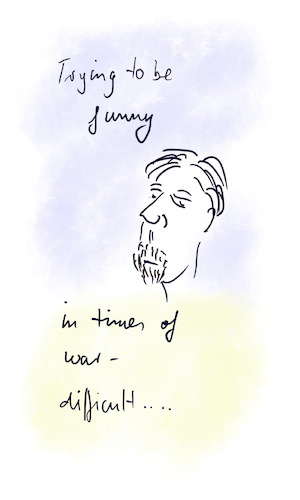 Trying to be
funny
in times of
war -
difficult....